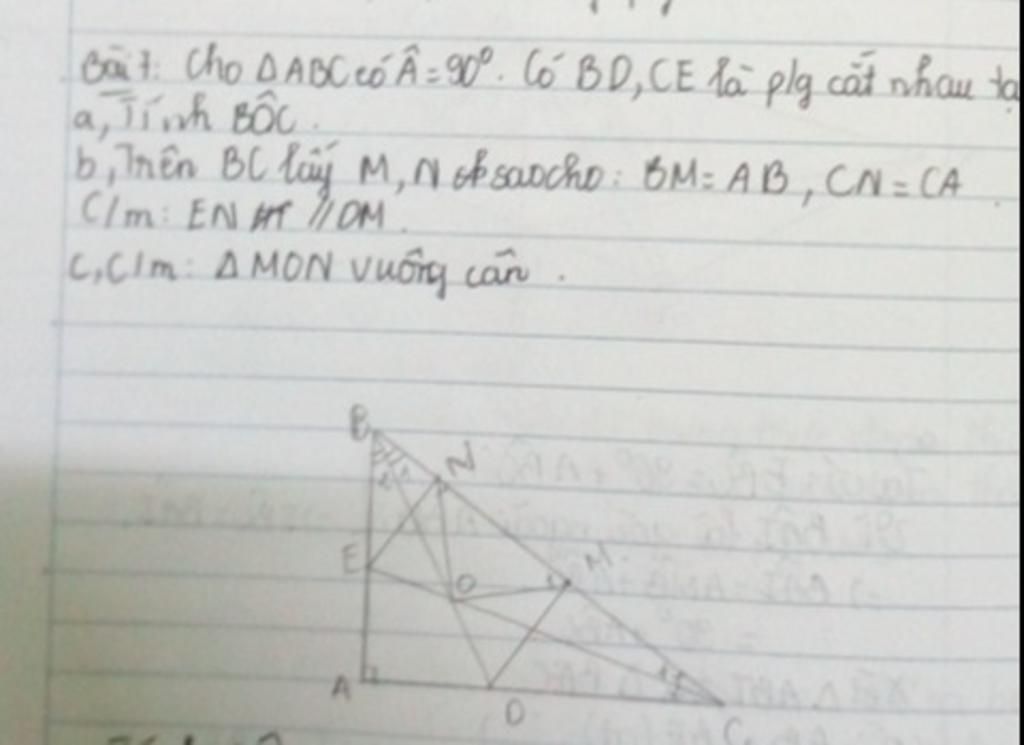 Bài 7: Cho ΔABC có Â = 90°. Có BD, CE là p/g cắt nhau tạ
a, Tính BÔC.
b, Trên BC lấy M, N sao cho: BM = AB, CN = CA.
C/m: EN // DM.
c, C/m: Δ MON vuông cân.
B
N
E
M
O
A
D
C